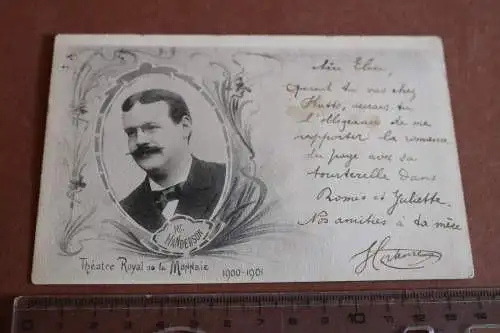 Mr. HENDERSON
Théatre Royal DE LA Monnaie 1900-1901
Quand tu vas chez
aurais tu
l'obligeance de me
rapporter la romance
du page avec sa
tourterelle dans
Roméo et Juliette.
Nos amitiés à ta mère